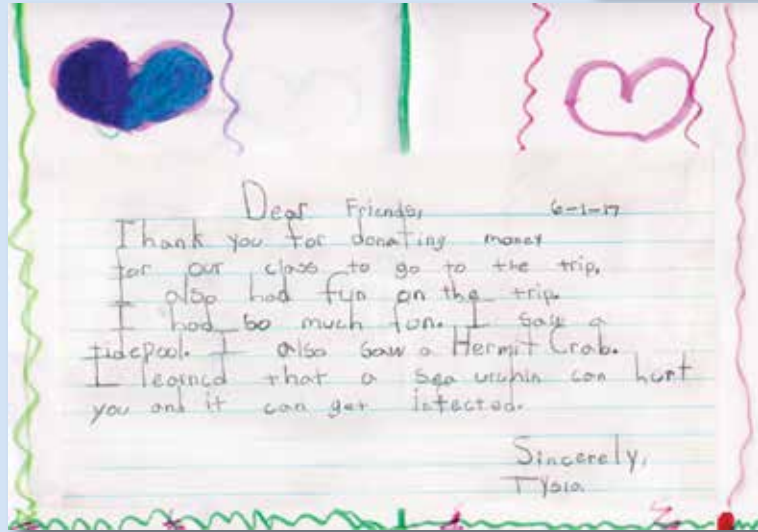 Dear Friends, 6-1-17
Thank you for donating money
for our class to go to the trip.
I also had fun on the trip.
I had so much fun. I saw a
tidepool. I also saw a Hermit Crab.
I learned that a sea urchin can hurt
you and it can get infected.
Sincerely,